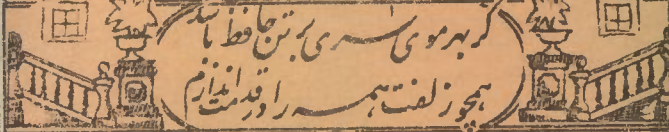 گر بهر موی سری بر تن حافظ باشد
همچو زلفت همه را در قدمت اندازم